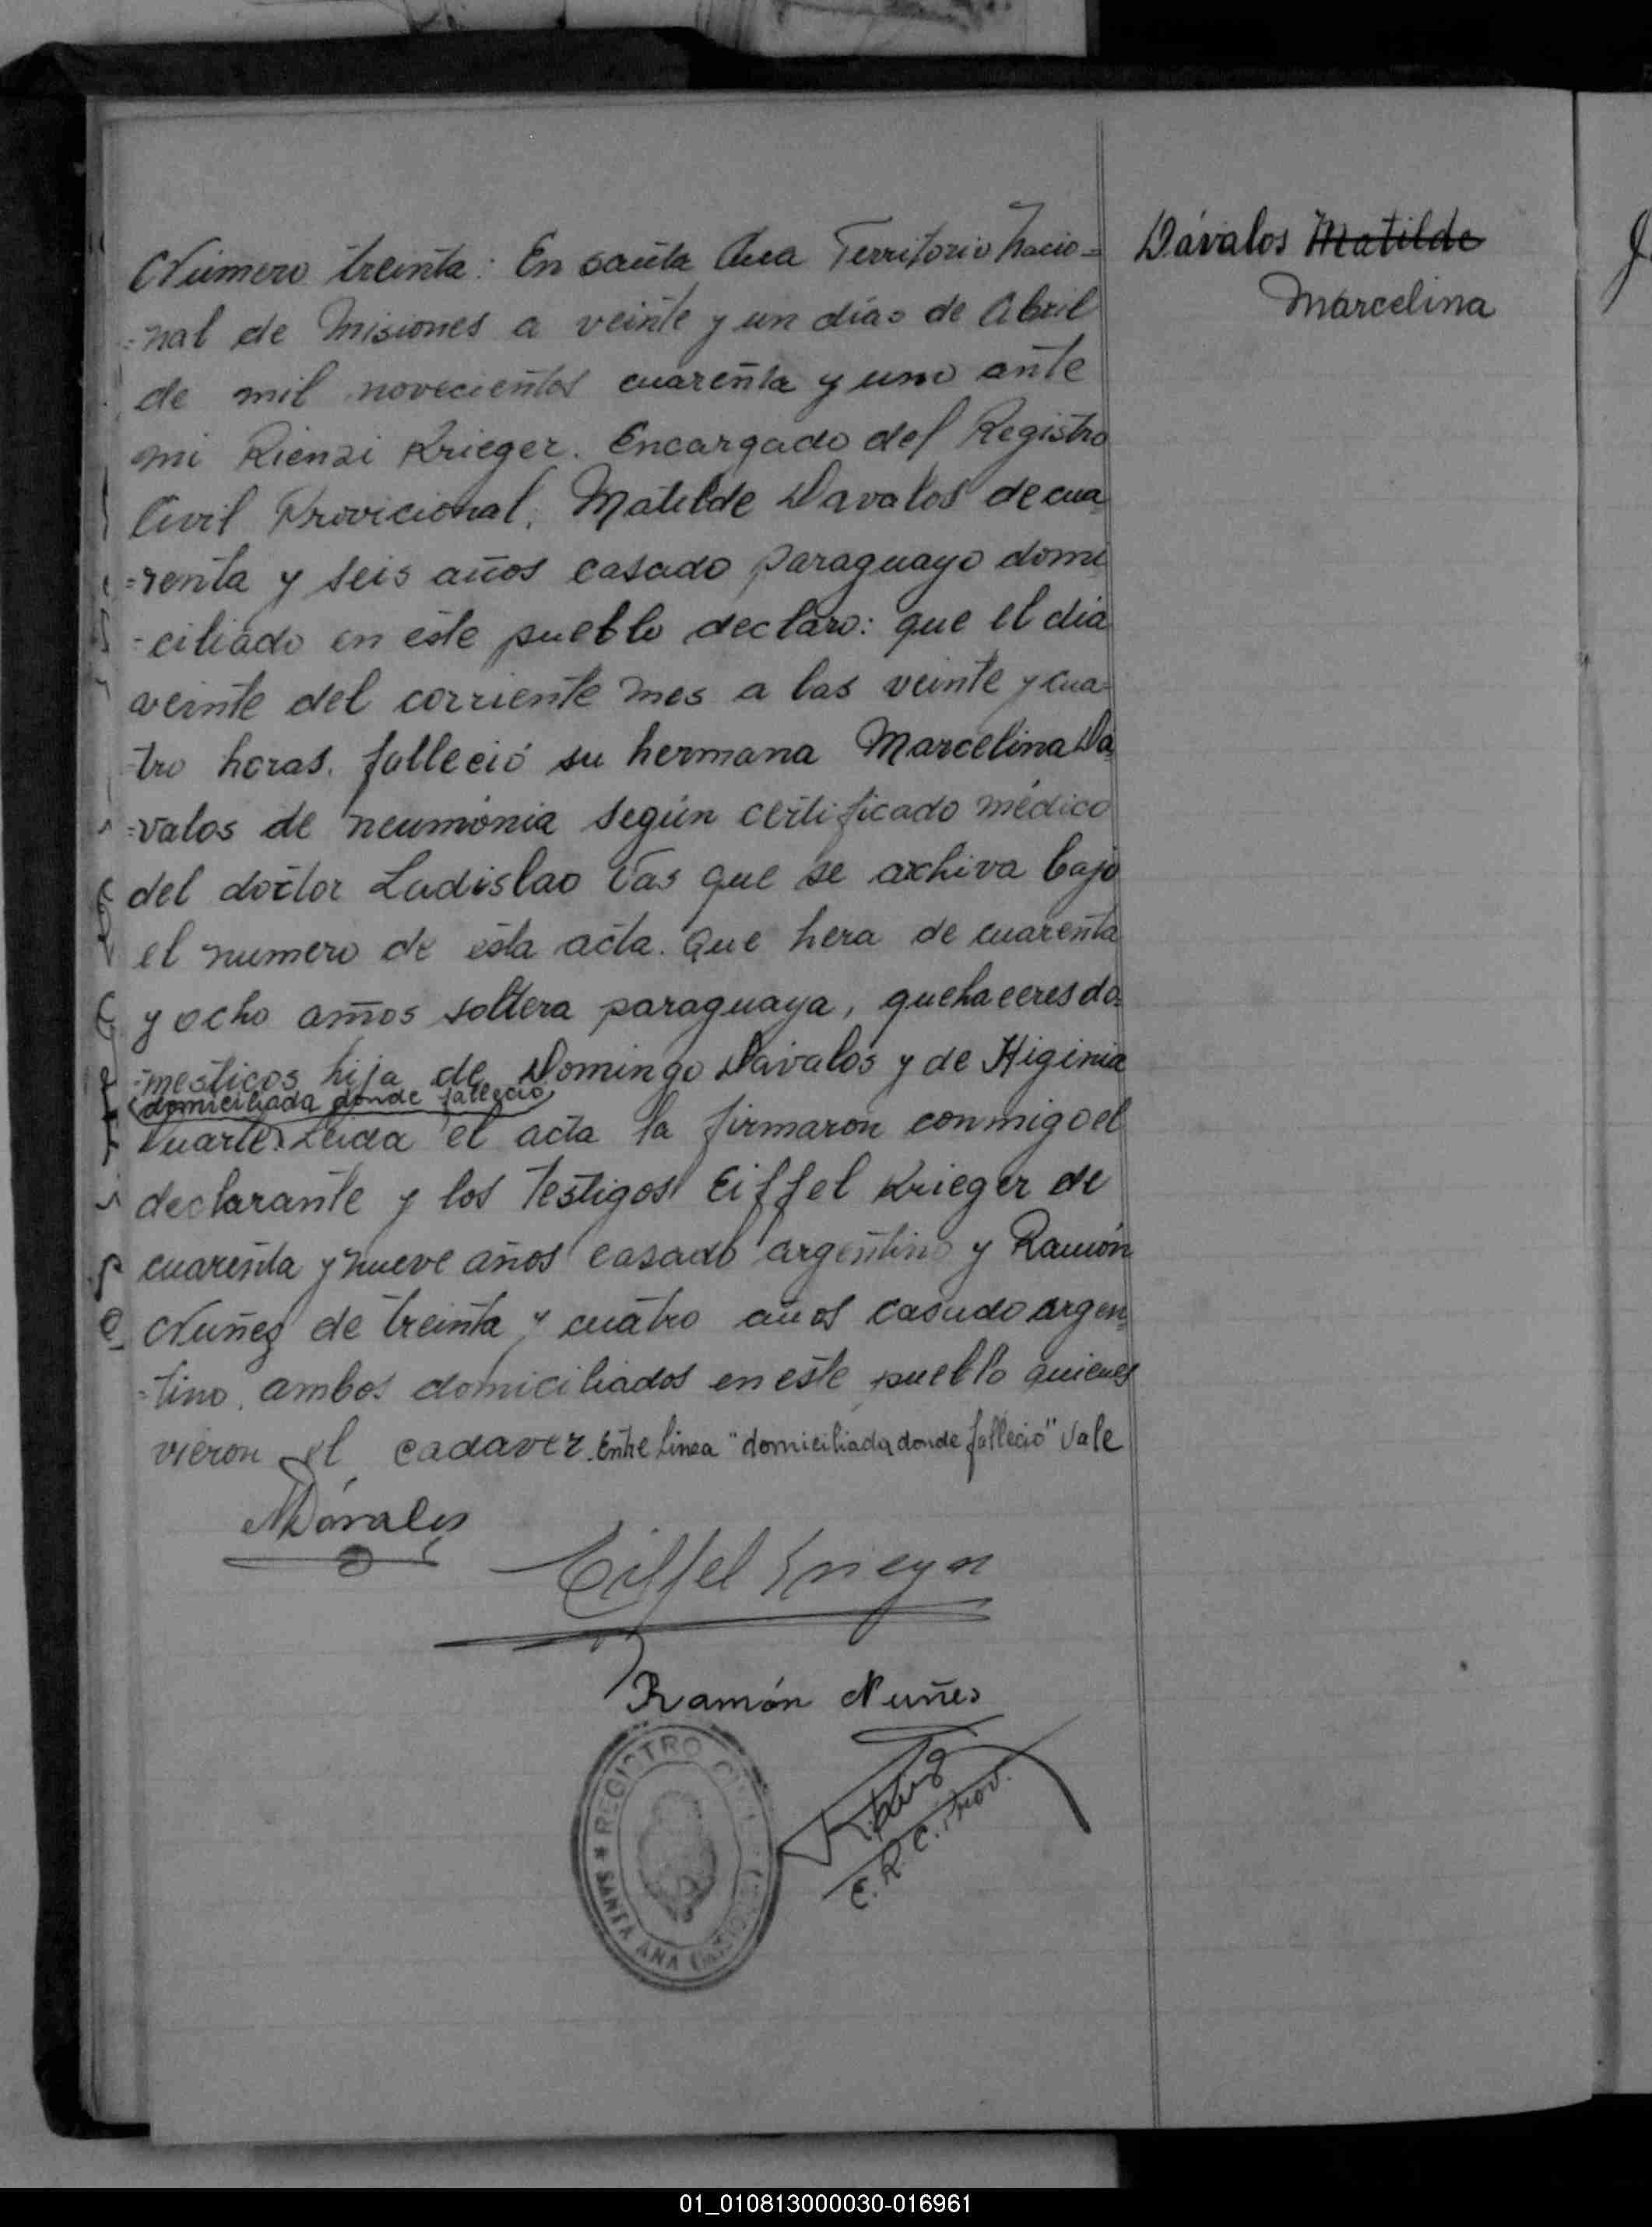 Número treinta: En santa Ana Territorio Nacio=
=nal de Misiones a veinte y un días de Abril
de mil novecientos cuarenta y uno ante
mi Rienzi Krieger. Encargado del Registro
Civil Provicional, Matilde Davalos de cua
=renta y seis años casado paraguayo domi
-ciliado en este pueblo declaro: que el dia
veinte del corriente mes a las veinte y cua-
tro horas. falleció su hermana Marcelina Da
=valos de neumónia según certificado médico
del doctor Ladislao Vas que se archiva bajo
el numero de esta acta. Que hera de cuarenta
y ocho años soltera paraguaya, quehaceres do=
=mesticos hija de Domingo Dávalos y de Higinia
domiciliada donde falleció
Duarte. Leida el acta la firmaron conmigo el
declarante y los testigos Eiffel Krieger de
cuarenta y nueve años casado argentino y Ramón
Nuñez de treinta y cuatro años casado argen
=tino, ambos domiciliados en este pueblo quienes
vieron el cadaver. Entre linea "domiciliada donde falleció" Vale
MDávalos
Eiffel Krieger
Ramón Nuñes
E. R. C. Prov.
REGISTRO CIVIL
SANTA ANA (MISIONES)
Dávalos Matilde
Marcelina
01_010813000030-016961